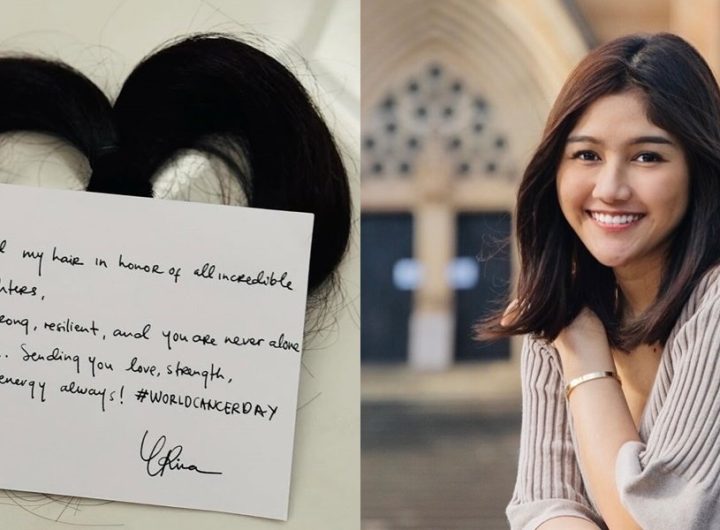 my hair in honor of all incredible
rong, resilient, and you are never alone
Sending you love, strength,
energy always! #WORLDCANCERDAY